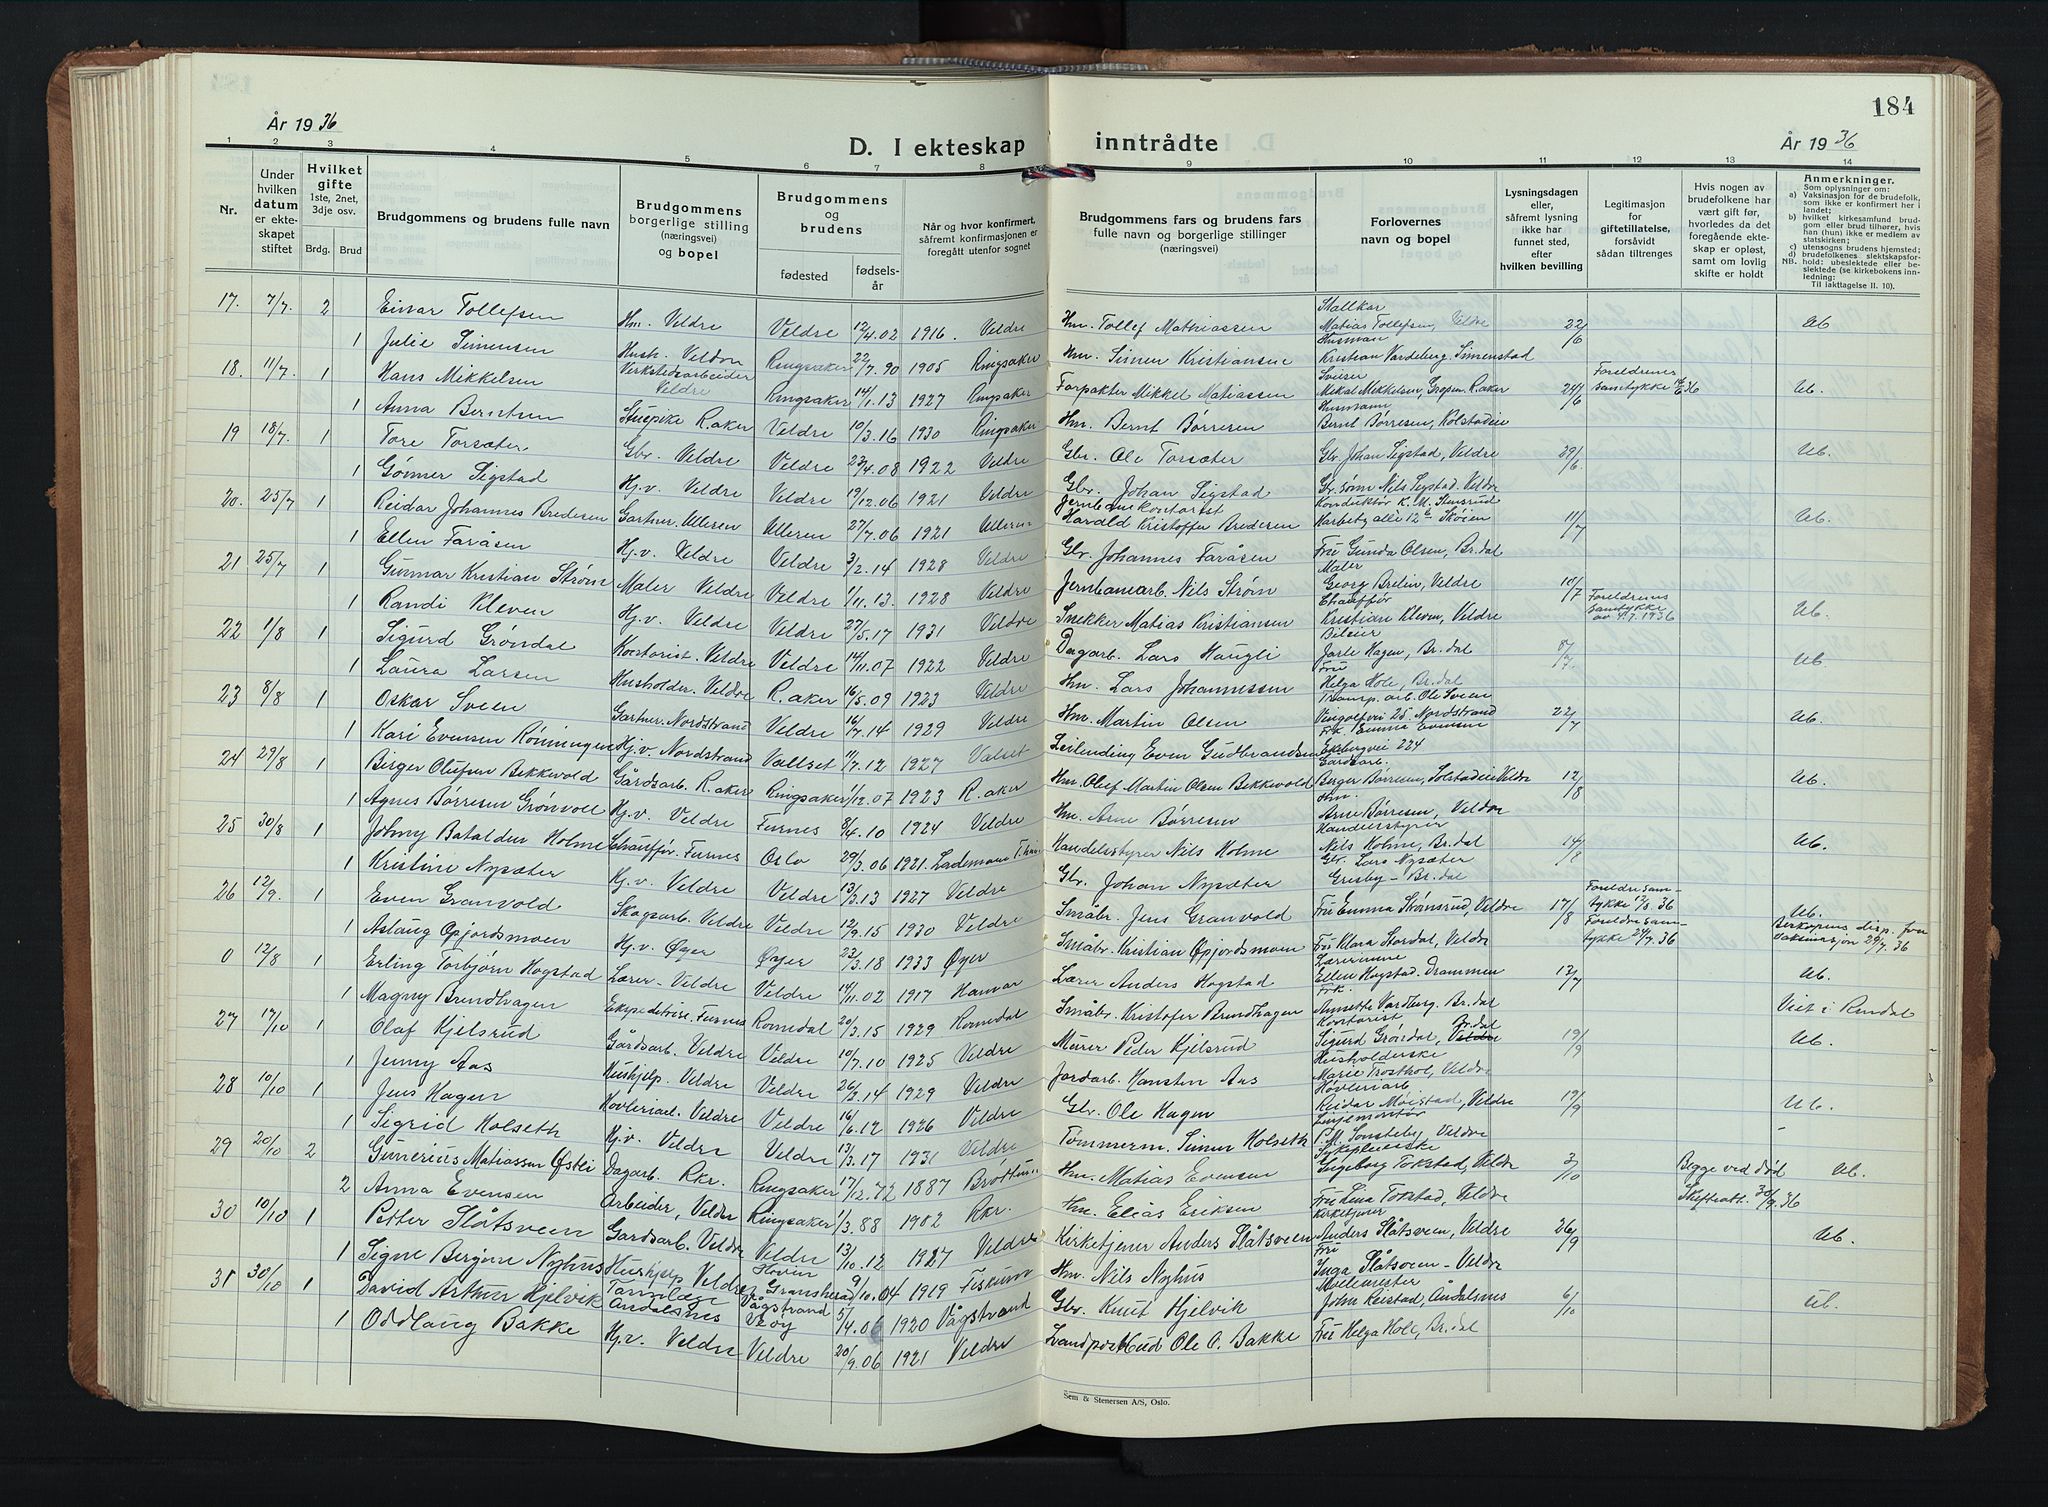 184
År 1936
D. I ekteskap inntrådte
År 1936
1 2 3 4 5 6 7 8 9 10 11 12 13 14
Nr.
Under hvilken datum er ekteskapet stiftet
Hvilket gifte 1ste, 2net, 3dje osv.
Brdg. Brud
Brudgommens og brudens fulle navn
Brudgommens borgerlige stilling (næringsvei) og bopel
Brudgommens og brudens
fødested
fødselsår
Når og hvor konfirmert, såfremt konfirmasjonen er foregått utenfor sognet
Brudgommens fars og brudens fars fulle navn og borgerlige stillinger (næringsvei)
Forlovernes navn og bopel
Lysningsdagen eller, såfremt lysning ikke har funnet sted, efter hvilken bevilling
Legitimasjon for giftetillatelse, forsåvidt sådan tiltrenges
Hvis nogen av brudefolkene har vært gift før, hvorledes da det foregående ekteskap er opløst, samt om lovlig skifte er holdt
Anmerkninger.
Som oplysninger om:
a) Vaksinasjon for de brudefolk, som ikke er konfirmert her i landet;
b) hvilket kirkesamfund brudgom eller brud tilhører, hvis han (hun) ikke er medlem av statskirken;
c) utensogns brudens hjemsted;
d) brudefolkenes slektskapsforhold: ubeslektede eller beslektede (se kirkebokens innledning;
NB. Til iakttagelse II. 10).
17. 7/7. 2 Einar Tollefsen Hm. Veldre Veldre 12/4.02 1916. Veldre Hm. Tollef Mathiassen Stallkar Matias Tollefsen, Veldre 22/6 Ub
1 Julie Simensen Hush. Veldre Ringsaker 22/7.90 1905 Ringsaker Hm. Simen Kristiansen Husmann Kristian Vardeberg, Simenstad
18. 11/7. 1 Hans Mikkelsen Verkstedsarbeider Veldre Ringsaker 14/1.13 1927 Ringsaker Forpakter Mikkel Matiassen Sveiser Mikal Mikkelsen, Gropen R.aker 24/6 Foreldrenes samtykke 36 Ub.
1 Anna Berntsen Stuepike R.aker Veldre 10/3.16 1930 Ringsaker Hm. Bernt Børresen Husmann Bernt Børresen, Kolstadeie
19 18/7. 1 Tore Torsæter Gbr. Veldre Veldre 23/4.08 1922 Veldre Gbr. Ole Torsæter Gbr. Johan Sigstad, Veldre 29/6 Ub.
1 Gønner Sigstad Hj.v. Veldre Veldre 19/12.06 1921 Veldre Gbr. Johan Sigstad Gbr. sønn Nils Sigstad. Veldre
20. 25/7 1 Reidar Johannes Bredesen Gartner. Ulleren Ulleren 27/7.06 1921 Ulleren Jernbanekontorist Harald Kristoffer Bredesen Konduktør K. M. Stensrud Harbitzalle 12 Skøien 11/7 Ub.
1 Ellen Faråsen Hj.v. Veldre Veldre 3/2.14 1928 Veldre Gbr. Johannes Faråsen Fru Gunda Olsen, Br.dal
21 25/7 1 Gunnar Kristian Strøm Maler Veldre Veldre 1/11.13. 1928 Veldre Jernbanearb. Nils Strøm Maler Georg Brelin, Veldre 10/7 Foreldrenes samtykke av 4.7.1936 Ub.
1 Randi Kleven Hj.v. Veldre Veldre 27/5.17 1931 Veldre Snekker Matias Kristiansen Chauffør Kristian Kleven, Veldre
22 1/8 1 Sigurd Grøndal Kontorist. Veldre Veldre 14/11.07 1922 Veldre Dagarb. Lars Haugli Bileier Jarle Hagen, Br.dal Ub.
1 Laura Larsen Husholder. Veldre R.aker 16/5.09 1923 Veldre Hm. Lars Johannessen Fru Helga Hole, Br.dal
23 8/8 1 Oskar Sveen Gartner. Nordstrand Veldre 16/7.14 1929 Veldre Hm. Martin Olsen Transp. arb. Ole Sveen Vingolfvei 25. Nordstrand 22/7 Ub.
1 Kari Evensen Rønningen Hj.v. Nordstrand Vallset 11/7.12 1927 Valset Leilending Even Gudbrandsen Frk. Emma Evensen Ekebergvei 224
24 29/8 1 Birger Olufsen Bekkevold Gårdsarb. R.aker Ringsaker 1/12.07 1923 R.aker Hm. Oluf Martin Olsen Bekkevold Gårdsarb. Berger Børresen, Solstadeie Veldre 12/8 Ub.
1 Agnes Børresen Grønvoll Hj.v. Veldre Furnes 8/4.10 1924 Veldre Hm. Arne Børresen Hm. Arne Børresen, Veldre
25 30/8 1 Johny Batalden Holme Chauffør. Furnes Oslo 29/3.06 1921. Lademoen T.heim Handelsstyrer Nils Holme Handelsstyrer Nils Holme, Br.dal 14/8 Ub.
1 Kristine Nysæter Hj.v. Veldre Veldre 13/3.13 1927 Veldre Gbr. Johan Nysæter Gbr. Lars Nysæter Gresby - Br.dal
26 12/9. 1 Even Granvold Skogsarb. Veldre Veldre 12/9.15 1930 Veldre Småbr. Jens Granvold Fru Emma Strømsrud, Veldre 17/8 Foreldresamtykke 36 Ub.
1 Aslaug Opjordsmoen Hj.v. Øyer Øyer 23/3.18 1933 Øyer Småbr. Kristian Opjordsmoen Fru Klara Stordal, Veldre Foreldresamtykke 24/7.36 Biskopens disp. for vaksinasjon 29/7.36
0 12/8 1 Erling Torbjørn Hogstad Lærer - Veldre Veldre 14/11.02 1917 Hamar Lærer Anders Hogstad Lærerinne Ellen Hogstad. Drammen 13/7 Ub.
1 Magny Brendhagen Ekspeditrise. Furnes Romedal 20/3.15 1929 Romedal Småbr. Kristofer Brendhagen Frk. Annette Vardberg. Br.dal Viet i Rendal
27 17/10 1 Olaf Kjelsrud Gårdsarb. Veldre Veldre 10/7.10 1925 Veldre Murer Peder Kjelsrud Kontorist Sigurd Grøndal, Veldre Br.dal 19/9 Ub.
1 Jenny Aas Hushjelp. Veldre Veldre 26/3.14 1929 Veldre Jordarb. Hansten Aas Husholderske Marie Trosthol, Veldre
28 10/10 1 Jens Hagen Høvleriarb. Veldre Veldre 16/6.12 1926 Veldre Gbr. Ole Hagen Høvleriarb. Reidar Moistad, Veldre 19/9 Ub.
1 Sigrid Holseth Hj.v. Veldre Veldre 13/3.17 1931 Veldre Tømmerm. Simen Holseth Linjemontør P.M. Sonsteby, Veldre
29 20/10 2 Gunerius Matiassen Østli Dagarb. Rkr. Ringsaker 17/12.72 1887 Brøttum Hm. Matias Evensen Sykepleierske Ingeborg Tokstad, Veldre 3/10 Begge ved død Skifteatt. 30/9.36 Ub.
2 Anna Evensen Arbeider, Veldre Ringsaker 1/3.88 1902 Rkr. Hm. Elias Eriksen Fru Lina Tokstad, Veldre
30 10/10 1 Petter Slåtsveen Gårdsarb. Veldre Veldre 13/10.12 1927 Veldre Kirketjener Anders Slåtsveen Kirketjener Anders Slåtsveen, Veldre 26/9 Ub.
1 Signe Bergine Nyhus Hushjelp Veldre Hovin Gransherad 9/10.04 1919 Fiskum Hm. Nils Nyhus Fru Inga Slåtsveen - Veldre
31 30/10 1 David Arthur Hjelvik Åndalsnes Vågstrand Veøy 5/4.06 1920 Vågstrand Gbr. Knut Hjelvik Møllemester John Reistad, Åndalsnes 6/10 Ub.
1 Oddlaug Bakke Hj.v. Veldre Veldre 20/9.06 1921 Veldre Landpostbud Ole O. Bakke Fru Helga Hole, Br.dal
Sem & Stenersen A/S, Oslo.